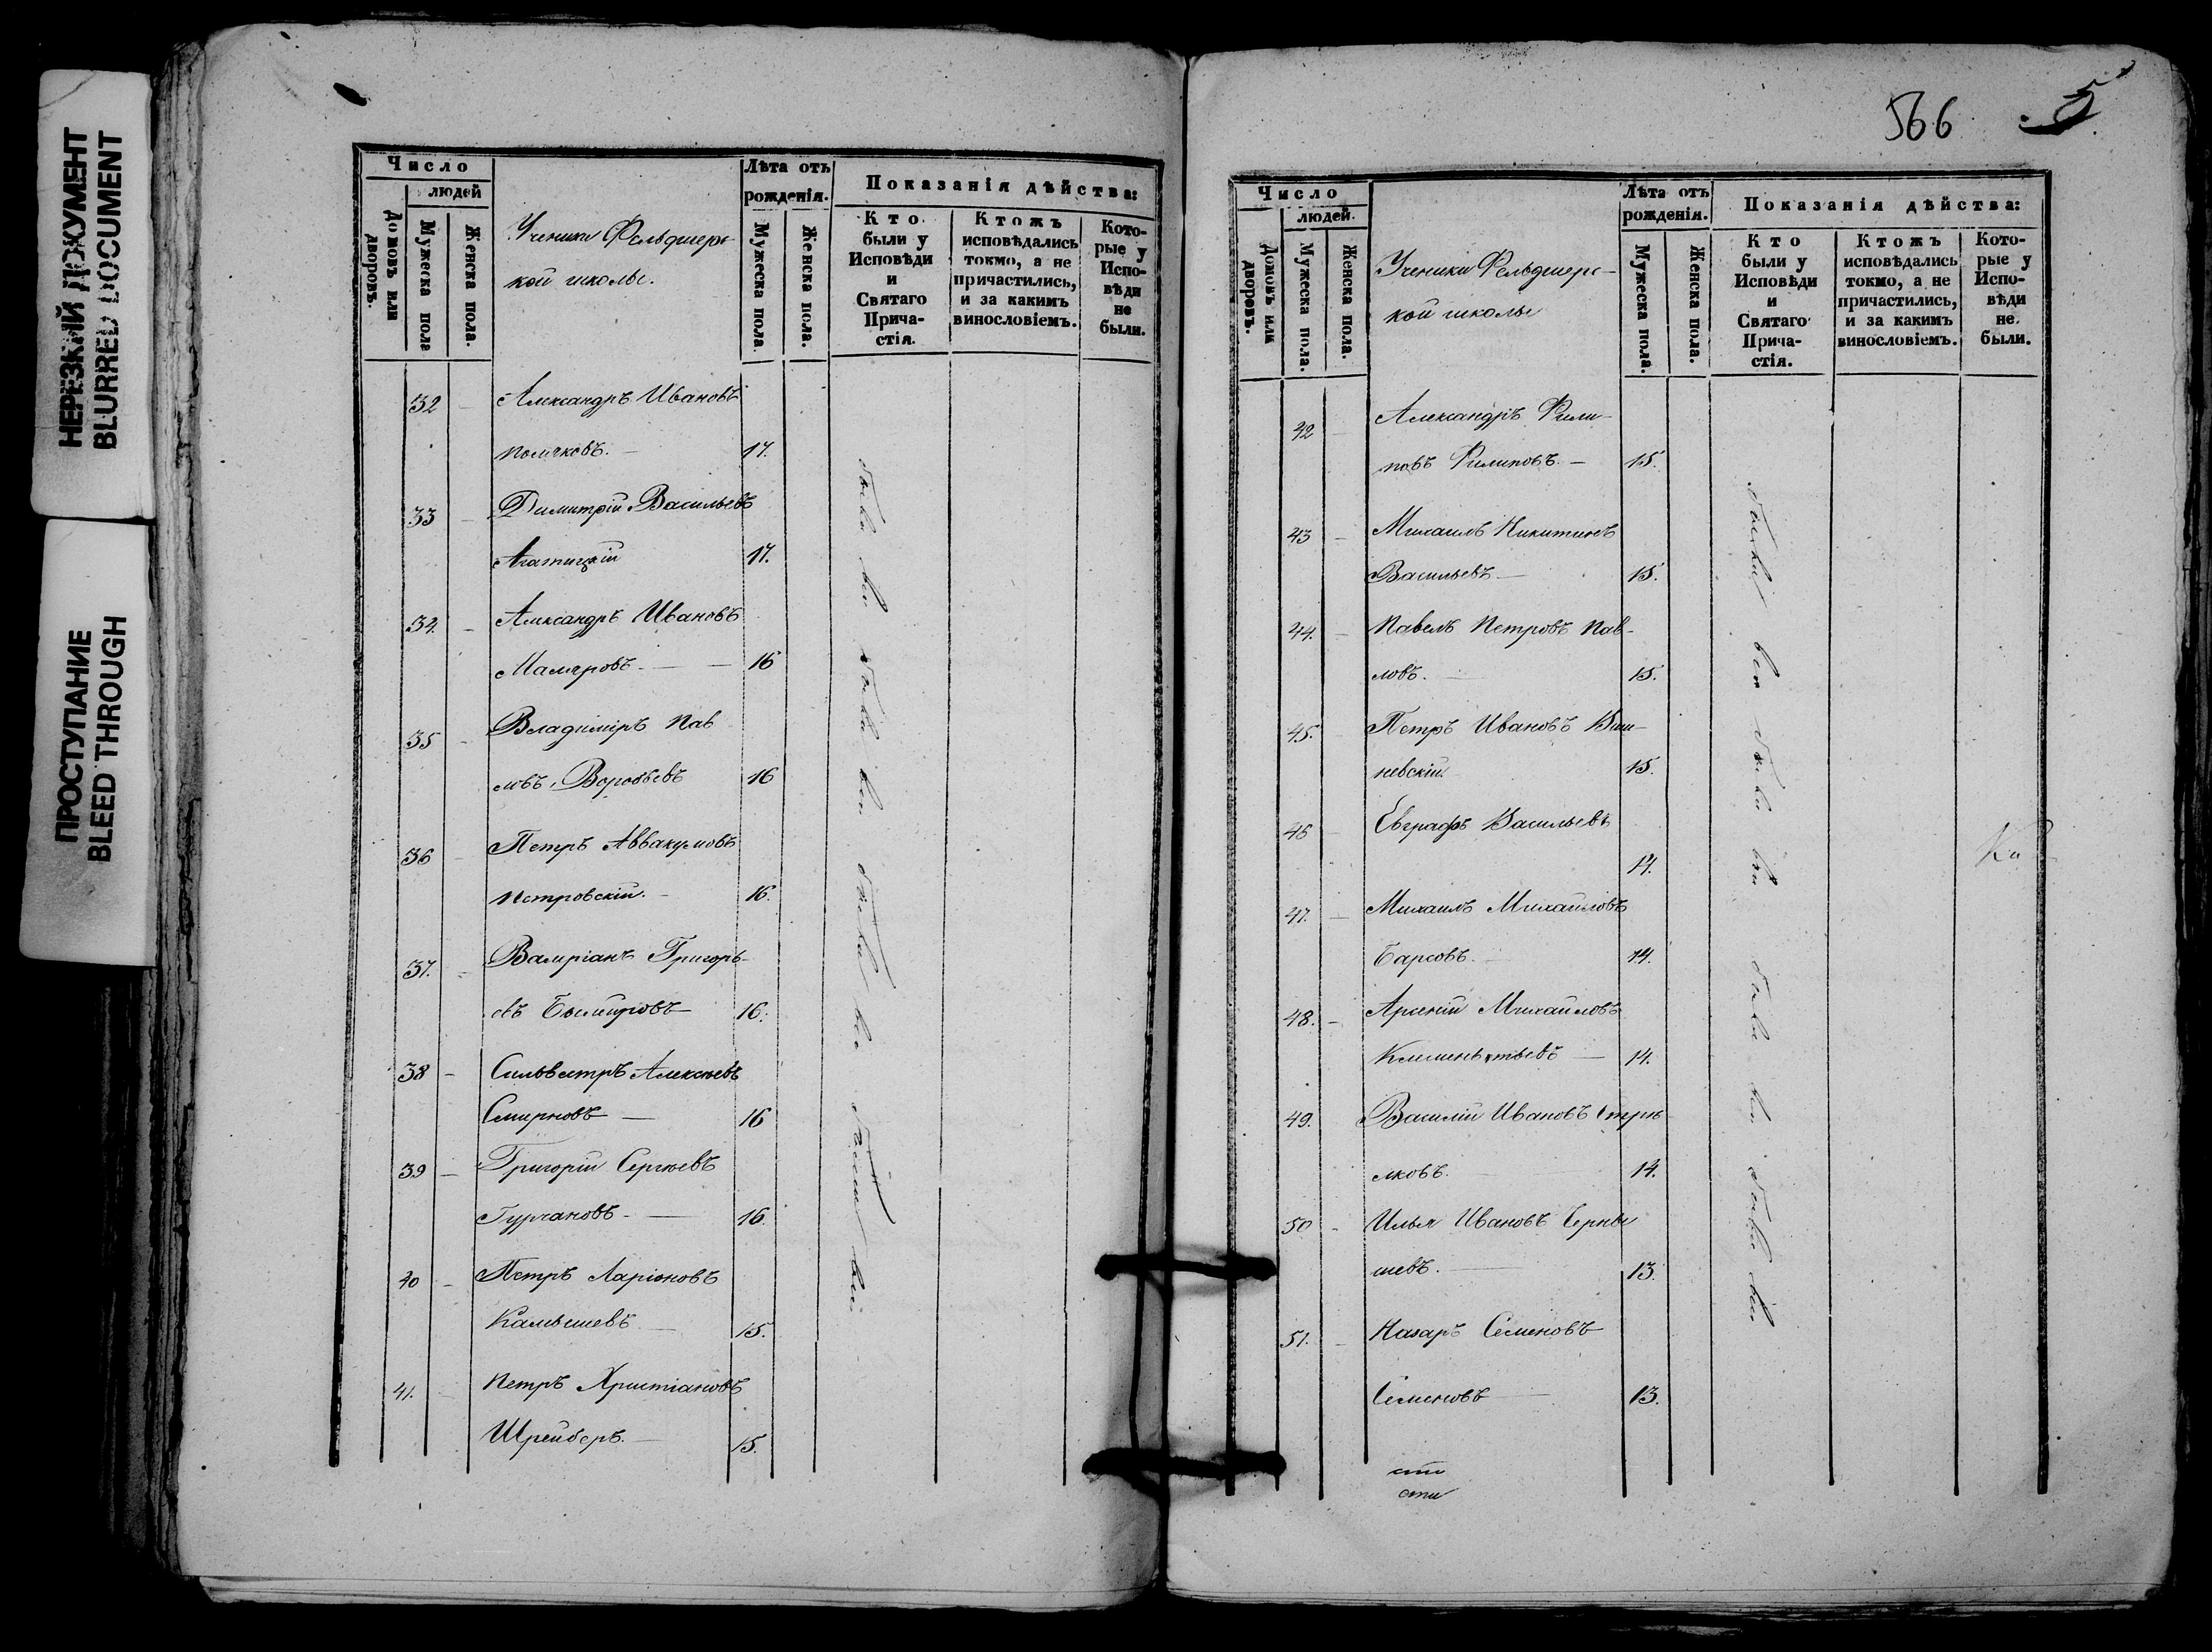 НЕРЕЗКИЙ ДОКУМЕНТ
BLURRED DOCUMENT
ПРОСТУПАНИЕ
BLEED THROUGH
Число
людей
Домовъ или дворовъ.
Мужеска пола
Женска пола.
Ученики Фельдшерс-
кой школы.
Лѣта отъ
рожденія.
Мужеска пола.
Женска пола.
Показанія дѣйства:
Кто
были у
Исповѣди
и
Святаго
Прича-
стія.
Ктожъ
исповѣдались
токмо, а не
причастились,
и за какимъ
винословіемъ.
Кото-
рые у
Испо-
вѣди
не
были.
32 Александръ Ивановъ
17.
33 Димитрій Васильевъ
17.
34. Александръ Ивановъ
Маляровъ. 16
35 Владиміръ Пав
ловъ Воробьевъ 16
36 Петръ Аввакумовъ
Петровскій. 16.
37. Валеріанъ Григорь-
евъ 16.
38 Сильвестръ Алексѣевъ
Смирновъ 16
39 Григорій Сергѣевъ
16.
40 Петръ Ларіоновъ
Камышевъ 15.
41. Петръ Христіановъ
Шрейберъ. 15.
были всѣ были всѣ были всѣ были всѣ
566 5
Число
людей.
Домовъ или дворовъ.
Мужеска пола.
Женска пола.
Ученики Фельдшерс-
кой школы
Лѣта отъ
рожденія.
Мужеска пола.
Женска пола.
Показанія дѣйства:
Кто
были у
Исповѣди
и
Святаго
Прича-
стія.
Ктожъ
исповѣдались
токмо, а не
причастились,
и за какимъ
винословіемъ.
Кото-
рые у
Испо-
вѣди
не
были.
42 Александръ Фили-
повъ Филиповъ. 15.
43 Михаилъ Никитинъ
Васильевъ 15.
44. Павелъ Петровъ Пав-
ловъ. 15.
45. Петръ Ивановъ
невскій. 15.
46 Евграфъ Васильевъ
14.
47. Михаилъ Михайловъ
Барсовъ. 14.
48. Арсеній Михайловъ
Клементьевъ 14.
49. Василій Ивановъ
14.
50 Илья Ивановъ
шевъ. 13.
51. Назаръ Семеновъ
Семеновъ 13.
были всѣ были всѣ были всѣ были всѣ